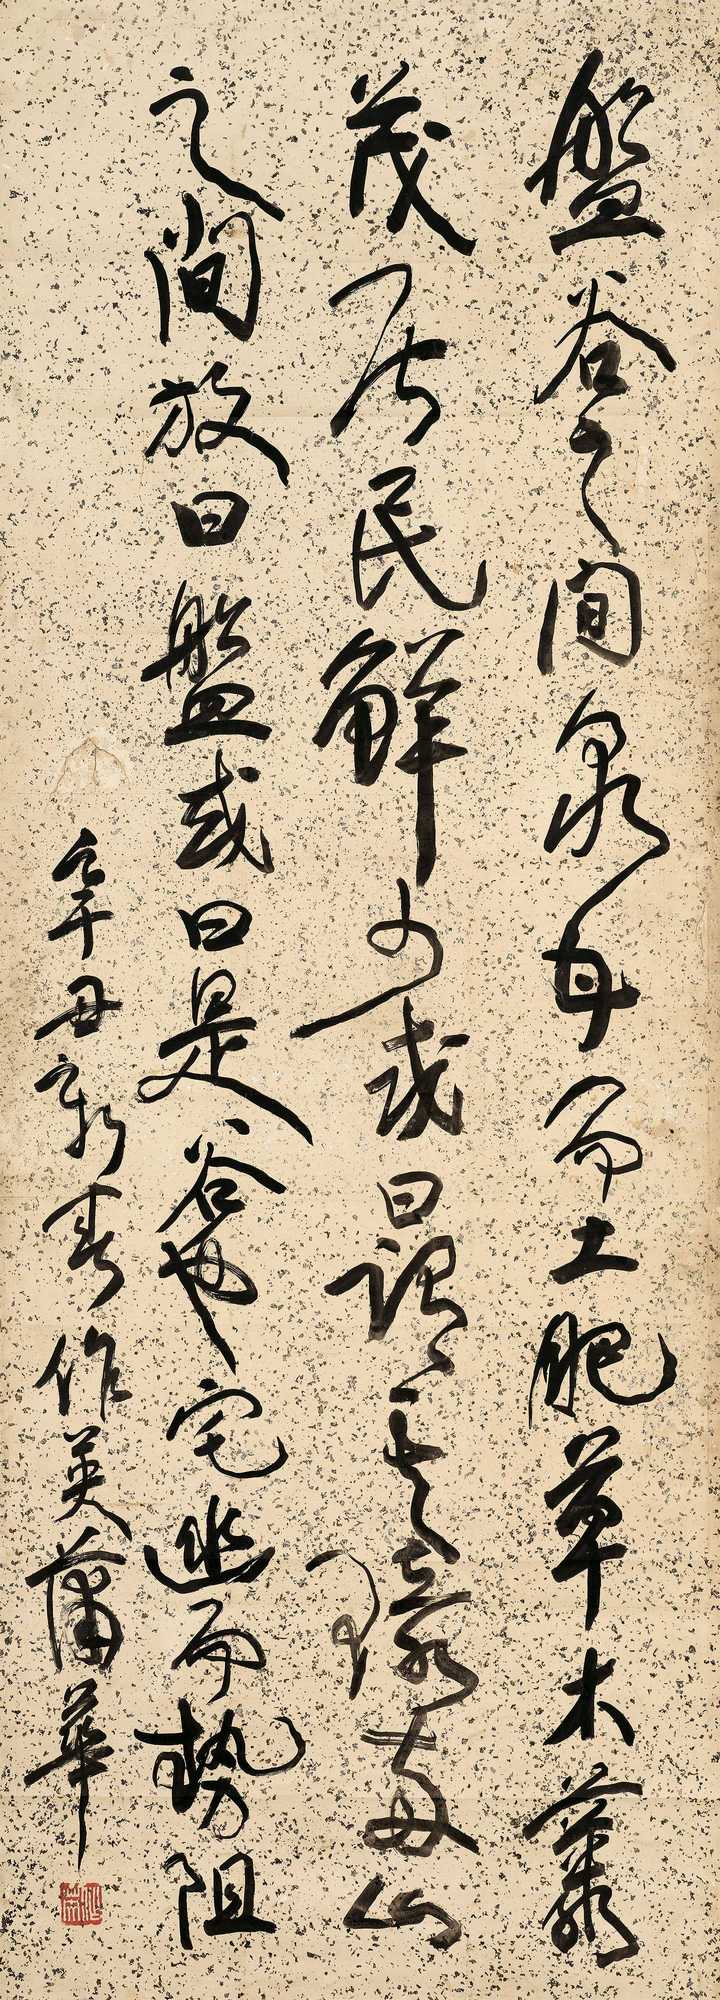 盤谷之間泉甘而土肥草木藂
茂居民鮮少或曰謂其環兩山
之間故曰盤或曰是谷也宅幽而勢阻
辛丑新春作英蒲華